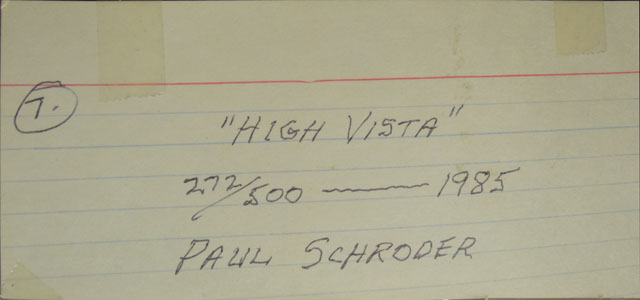 7.
"HIGH VISTA"
272/500 — 1985
PAUL SCHRODER